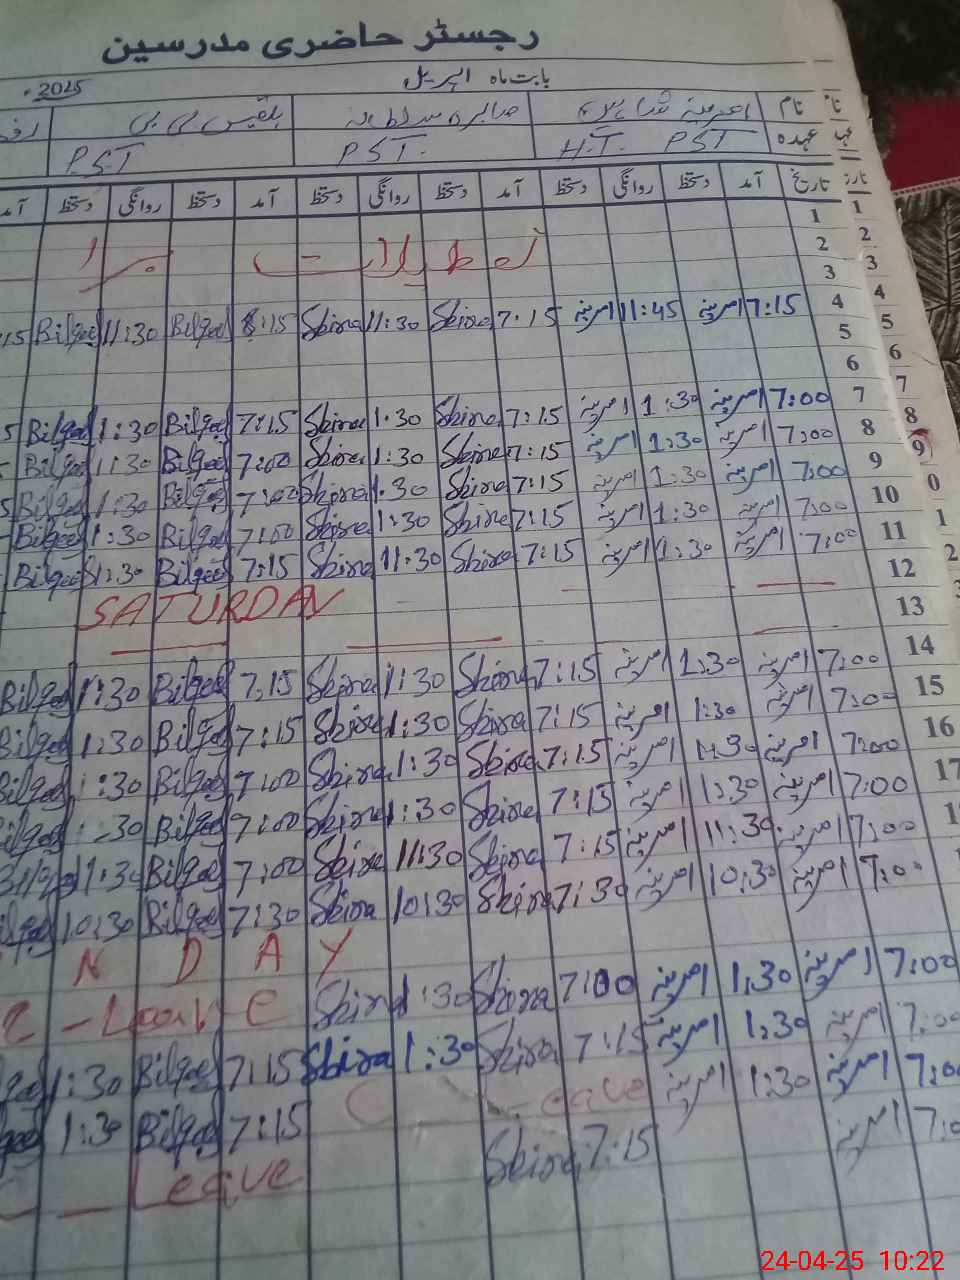 رجسٹر حاضری مدرسین
بابت ماہ اپریل 2025
نام نام امرینہ شاہین صابرہ سلطانہ بلقیس بی بی
عہدہ H.T. PST PST. PST
تاریخ آمد دستخط روانگی دستخط آمد دستخط روانگی دستخط آمد دستخط روانگی دستخط
1 1
2 2
3 3
4 7:15 امرینہ 11:45 امرینہ 7:15 Sbira 11:30 Sbira 8:15 Bilqees 11:30 Bilqees 4
5 5
6 6
7 7:00 امرینہ 1:30 امرینہ 7:15 Sbira 1:30 Sbira 7:15 Bilqees 1:30 Bilqees 7
8 7:00 امرینہ 1:30 امرینہ 7:15 Sbira 1:30 Sbira 7:00 Bilqees 1:30 Bilqees 8
9 7:00 امرینہ 1:30 امرینہ 7:15 Sbira 1:30 Sbira 7:00 Bilqees 1:30 Bilqees 9
10 7:00 امرینہ 1:30 امرینہ 7:15 Sbira 1:30 Sbira 7:00 Bilqees 1:30 Bilqees 0
11 7:00 امرینہ 1:30 امرینہ 7:15 Sbira 11:30 Sbira 7:15 Bilqees 11:30 Bilqees 1
12 SATURDAY 2
13
14 7:00 امرینہ 1:30 امرینہ 7:15 Sbira 1:30 Sbira 7:15 Bilqees 1:30 Bilqees
15 7:00 امرینہ 1:30 امرینہ 7:15 Sbira 1:30 Sbira 7:15 Bilqees 1:30 Bilqees
16 7:00 امرینہ 1:30 امرینہ 7:15 Sbira 1:30 Sbira 7:00 Bilqees 1:30 Bilqees
17 7:00 امرینہ 1:30 امرینہ 7:15 Sbira 1:30 Sbira 7:00 Bilqees :30 Bilqees
7:00 امرینہ 11:30 امرینہ 7:15 Sbira 11:30 Sbira 7:00 Bilqees 11:30
7:00 امرینہ 10:30 امرینہ 7:30 Sbira 10:30 Sbira 7:30 Bilqees 10:30
N D A Y
7:00 امرینہ 1:30 امرینہ 7:00 Sbira 1:30 Sbira C - Leave
7:00 امرینہ 1:30 امرینہ 7:15 Sbira 1:30 Sbira 7:15 Bilqees 1:30
7:00 امرینہ 1:30 امرینہ C Leave 7:15 Bilqees 1:30
امرینہ 7:15 Sbira C - Leave
24-04-25 10:22